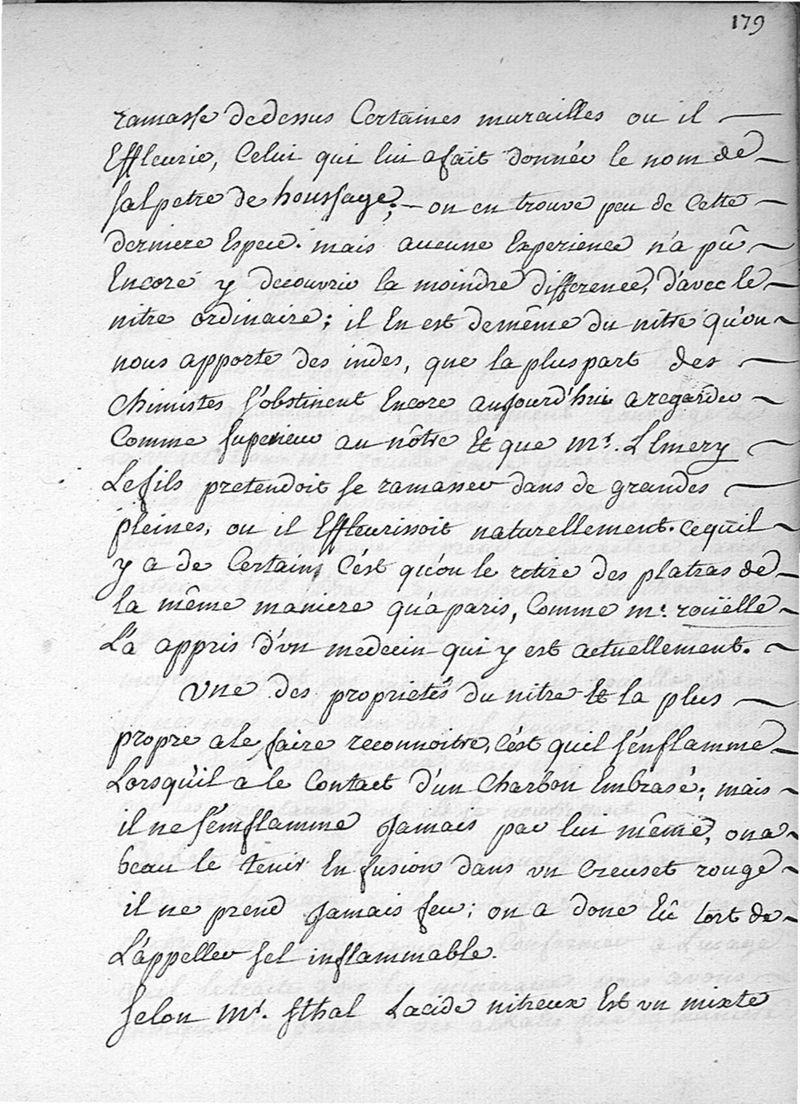 179
ramasse dedessus Certaines murailles ou il
Effleurie, Celui qui lui a fait donnée le nom de
salpetre de houssage; on en trouve peu de Cette
derniere Espece. mais aucune Experience n'a pû
Encore y decouvrir la moindre difference, d'avec le
nitre ordinaire; il En est demême du nitre qu'on
nous apporte des indes, que la pluspart des
Chimistes s'obstinent Encore aujourd'hui a regarder
Comme superieur au nôtre Et que Mr. L'Emery
Le fils pretendoit se ramasser dans de grandes
pleines, ou il Effleurissoit naturellement. cequil
y a de Certains C'est qu'on le retire des platras de
la même maniere qu'a paris, Comme Mr. roüelle
L'a appris d'vn medecin qui y est actuellement.
Vne des proprietés du nitre Et la plus
propre a le faire reconnoitre, C'est quil s'enflamme
Lorsqu'il a le Contact d'un Charbon Embrasé; mais
il ne s'emflamme Jamais par lui même, on a
beau le tenir En fusion dans vn Creuset rouge
il ne prend Jamais feu; on a donc Eû tort de
L'appeller sel inflammable.
Selon Mr. Sthal L'acide nitreux Est vn mixte